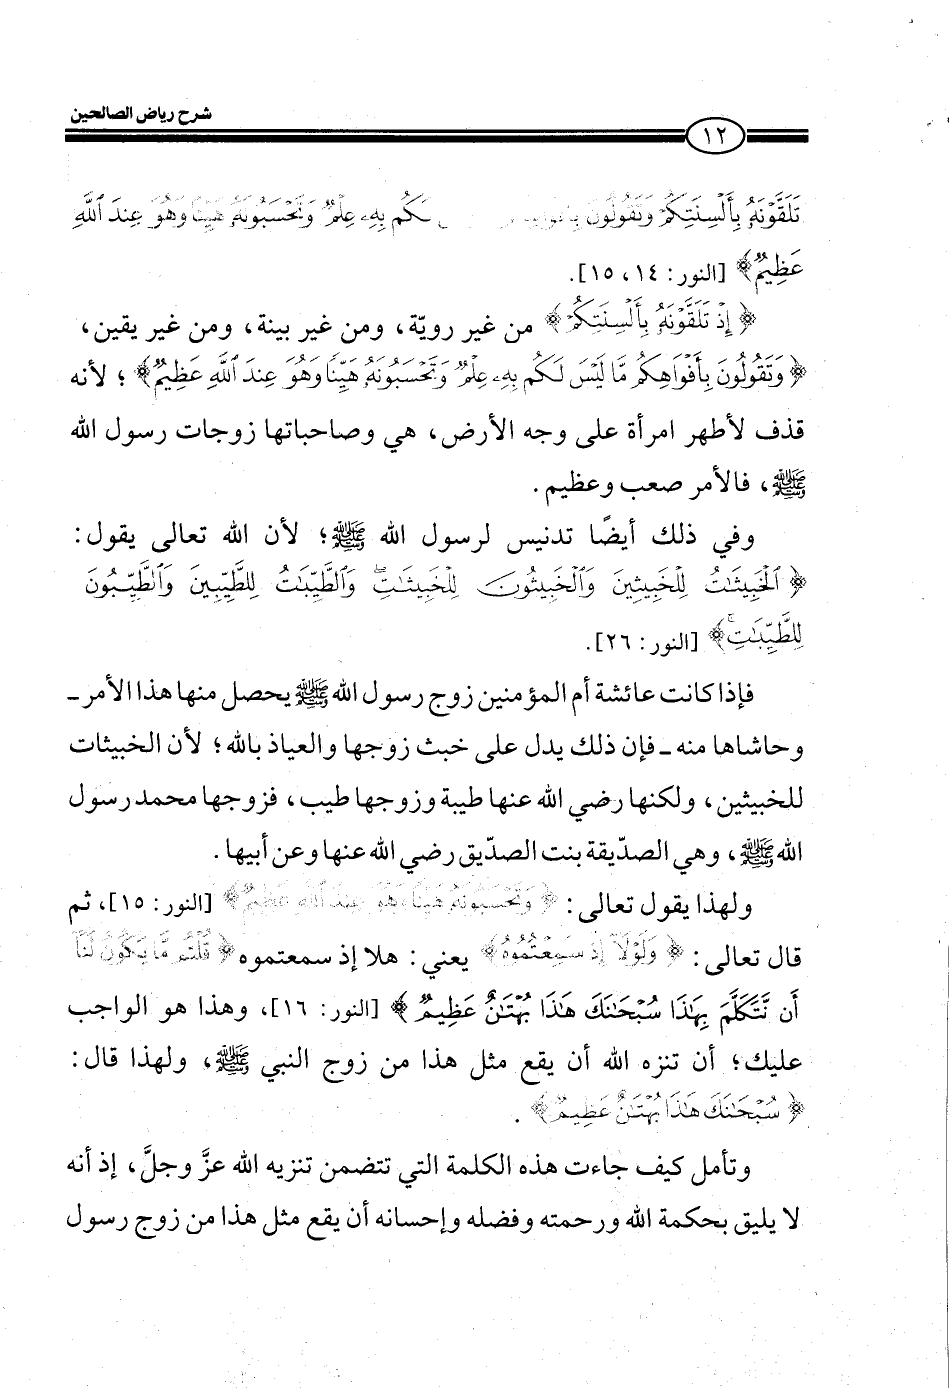 شرح رياض الصالحين
١٢
تَلَقَّوْنَهُۥ بِأَلْسِنَتِكُمْ وَتَقُولُونَ لَكُم بِهِۦ عِلْمٌ وَتَحْسَبُونَهُۥ هَيِّنًا وَهُوَ عِندَ ٱللَّهِ
عَظِيمٌ﴾ [النور: ١٤، ١٥].
﴿إِذْ تَلَقَّوْنَهُۥ بِأَلْسِنَتِكُمْ﴾ من غير رويّة، ومن غير بينة، ومن غير يقين،
﴿وَتَقُولُونَ بِأَفْوَاهِكُم مَّا لَيْسَ لَكُم بِهِۦ عِلْمٌ وَتَحْسَبُونَهُۥ هَيِّنًا وَهُوَ عِندَ ٱللَّهِ عَظِيمٌ﴾؛ لأنه
قذف لأطهر امرأة على وجه الأرض، هي وصاحباتها زوجات رسول الله
ﷺ، فالأمر صعب وعظيم.
وفي ذلك أيضًا تدنيس لرسول الله ﷺ؛ لأن الله تعالى يقول:
﴿ٱلْخَبِيثَـٰتُ لِلْخَبِيثِينَ وَٱلْخَبِيثُونَ لِلْخَبِيثَـٰتِ ۖ وَٱلطَّيِّبَـٰتُ لِلطَّيِّبِينَ وَٱلطَّيِّبُونَ
لِلطَّيِّبَـٰتِ ۚ﴾ [النور: ٢٦].
فإذا كانت عائشة أم المؤمنين زوج رسول الله ﷺ يحصل منها هذا الأمر ـ
وحاشاها منه ـ فإن ذلك يدل على خبث زوجها والعياذ بالله؛ لأن الخبيثات
للخبيثين، ولكنها رضي الله عنها طيبة وزوجها طيب، فزوجها محمد رسول
الله ﷺ، وهي الصدّيقة بنت الصدّيق رضي الله عنها وعن أبيها.
ولهذا يقول تعالى: ﴿وَتَحْسَبُونَهُۥ هَيِّنًا وَهُوَ عِندَ ٱللَّهِ عَظِيمٌ﴾ [النور: ١٥]، ثم
قال تعالى: ﴿وَلَوْلَآ إِذْ سَمِعْتُمُوهُ﴾ يعني: هلا إذ سمعتموه ﴿قُلْتُم مَّا يَكُونُ لَنَآ
أَن نَّتَكَلَّمَ بِهَـٰذَا سُبْحَـٰنَكَ هَـٰذَا بُهْتَـٰنٌ عَظِيمٌ﴾ [النور: ١٦]، وهذا هو الواجب
عليك؛ أن تنزه الله أن يقع مثل هذا من زوج النبي ﷺ، ولهذا قال:
﴿سُبْحَـٰنَكَ هَـٰذَا بُهْتَـٰنٌ عَظِيمٌ﴾.
وتأمل كيف جاءت هذه الكلمة التي تتضمن تنزيه الله عزَّ وجلَّ، إذ أنه
لا يليق بحكمة الله ورحمته وفضله وإحسانه أن يقع مثل هذا من زوج رسول